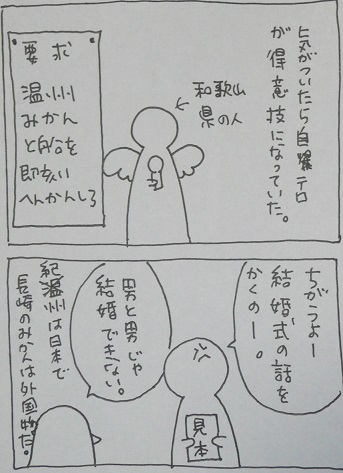 気がついたら自爆テロ
が得意技になっていた。
和歌山
県の人
要求
温州
みかん
と を
即刻い
へんかんしろ
ちがうよー
結婚式の話を
かくのー。
男と男じゃ
結婚できない。
見本
紀温州は日本で
長崎のみかんは外国物だ。